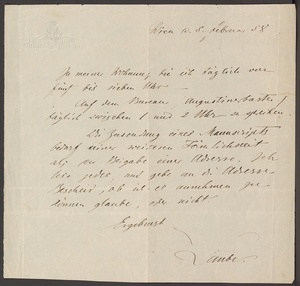 Wien d. 5. Februar 58
In meiner Wohnung bin ich täglich von
fünf bis sieben Uhr.
Auf dem Bureau Augustinerbastei
täglich zwischen 1 und 2 Uhr zu sprechen.
Die Zusendung eines Manuscripts
bedarf keiner weiteren Förmlichkeit
als zu Beigabe einer Adresse. Ich
lese jedes, und gebe an die Adresse
Bescheid, ob ich es annehmen zu
können glaube, oder nicht
Ergebenst
Laube